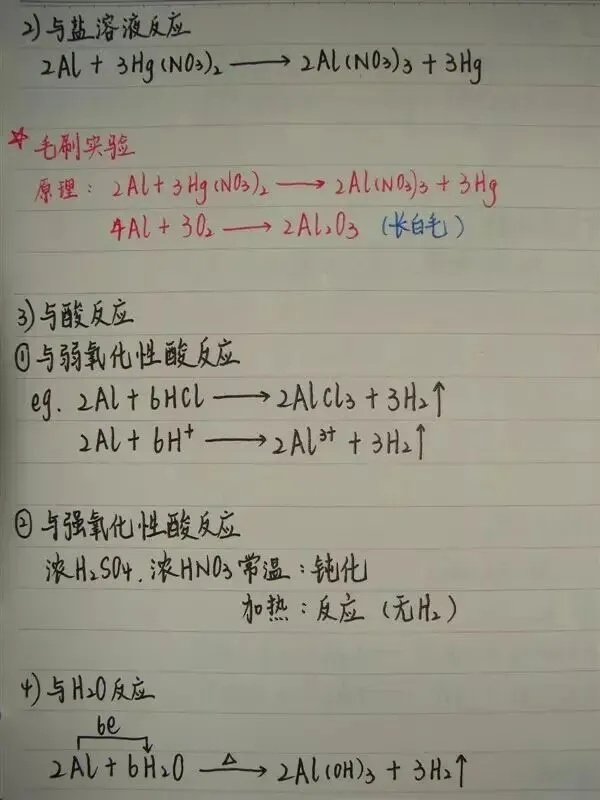 2) 与盐溶液反应
2Al + 3Hg(NO3)2 ⟶ 2Al(NO3)3 + 3Hg
☆ 毛刷实验
原理: 2Al + 3Hg(NO3)2 ⟶ 2Al(NO3)3 + 3Hg
4Al + 3O2 ⟶ 2Al2O3 (长白毛)
3) 与酸反应
① 与弱氧化性酸反应
eg. 2Al + 6HCl ⟶ 2AlCl3 + 3H2↑
2Al + 6H⁺ ⟶ 2Al³⁺ + 3H2↑
② 与强氧化性酸反应
浓H2SO4. 浓HNO3 常温: 钝化
加热: 反应 (无H2)
4) 与H2O反应
6e
2Al + 6H2O —△→ 2Al(OH)3 + 3H2↑